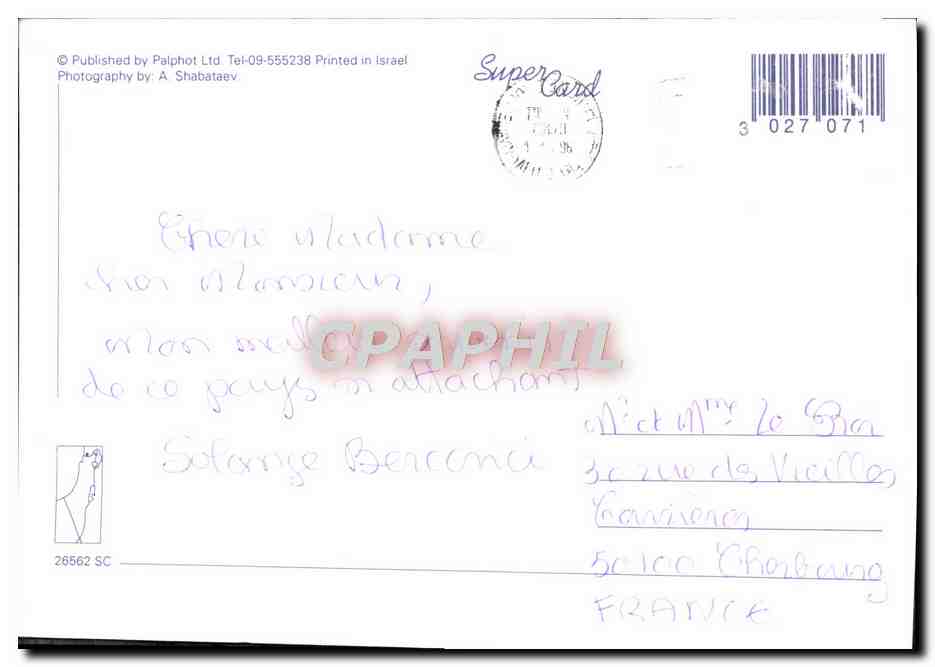 © Published by Palphot Ltd. Tel-09-555238 Printed in Israel
Photography by: A. Shabataev.
Super Card
3 027 071
Chere Madame
Monsieur,
mon
CPAPHIL
de ce pays si attachant
Solange
Mr et Mme Le
30 rue des Vieilles
Carrieres
50100 Cherbourg
FRANCE
26562 SC